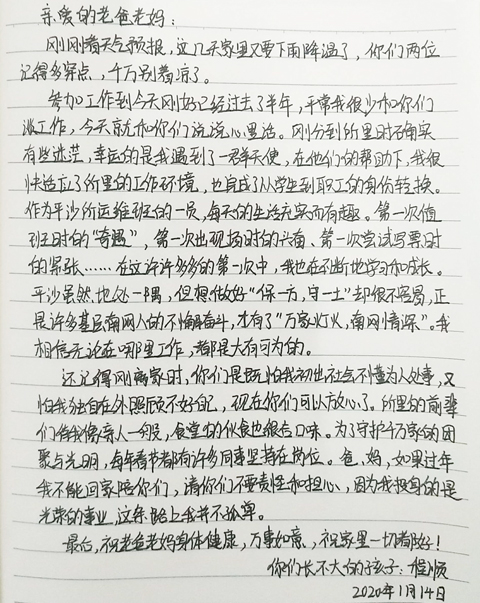 亲爱的老爸老妈：
刚刚看天气预报，这几天家里又要下雨降温了，你们两位
记得多穿点，千万别着凉了。
参加工作到今天刚好已经过去了半年，平常我很少和你们
谈工作，今天就和你们说说心里话。刚分到所里时确实
有些迷茫，幸运的是我遇到了一群天使，在他们的帮助下，我很
快适应了所里的工作环境，也完成了从学生到职工的身份转换。
作为平沙所运维班的一员，每天的生活充实而有趣。第一次值
班时的“奇遇”，第一次出现场时的兴奋、第一次尝试写票时
的紧张……在这许许多多的第一次中，我也在不断地学习和成长。
平沙虽然地处一隅，但想做好“保一方，守一土”却很不容易，正
是许多基层南网人的不懈奋斗，才有了“万家灯火，南网情深”。我
相信无论在哪里工作，都是大有可为的。
还记得刚离家时，你们是既怕我初出社会不懂为人处事，又
怕我独自在外照顾不好自己，现在你们可以放心了。所里的前辈
们待我像亲人一般，食堂的伙食也很合口味。为了守护千万家的团
聚与光明，每年春节都有许多同事坚持在岗位。爸、妈，如果过年
我不能回家陪你们，请你们不要责怪和担心，因为我投身的是
光荣的事业，这年陪上我并不孤单。
最后，祝老爸老妈身体健康，万事如意，祝家里一切都好！
你们长不大的孩子：程顺
2020年1月14日